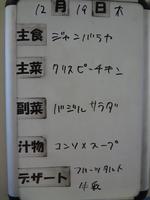 12月19日 木
主食 ジャンバラヤ
主菜 クリスピーチキン
副菜 バジルサラダ
汁物 コンソメスープ
デザート フルーツタルト
牛乳